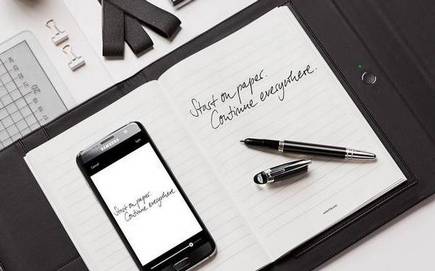 Start on paper.
Continue everywhere.
SAMSUNG
Start on paper.
Continue everywhere.